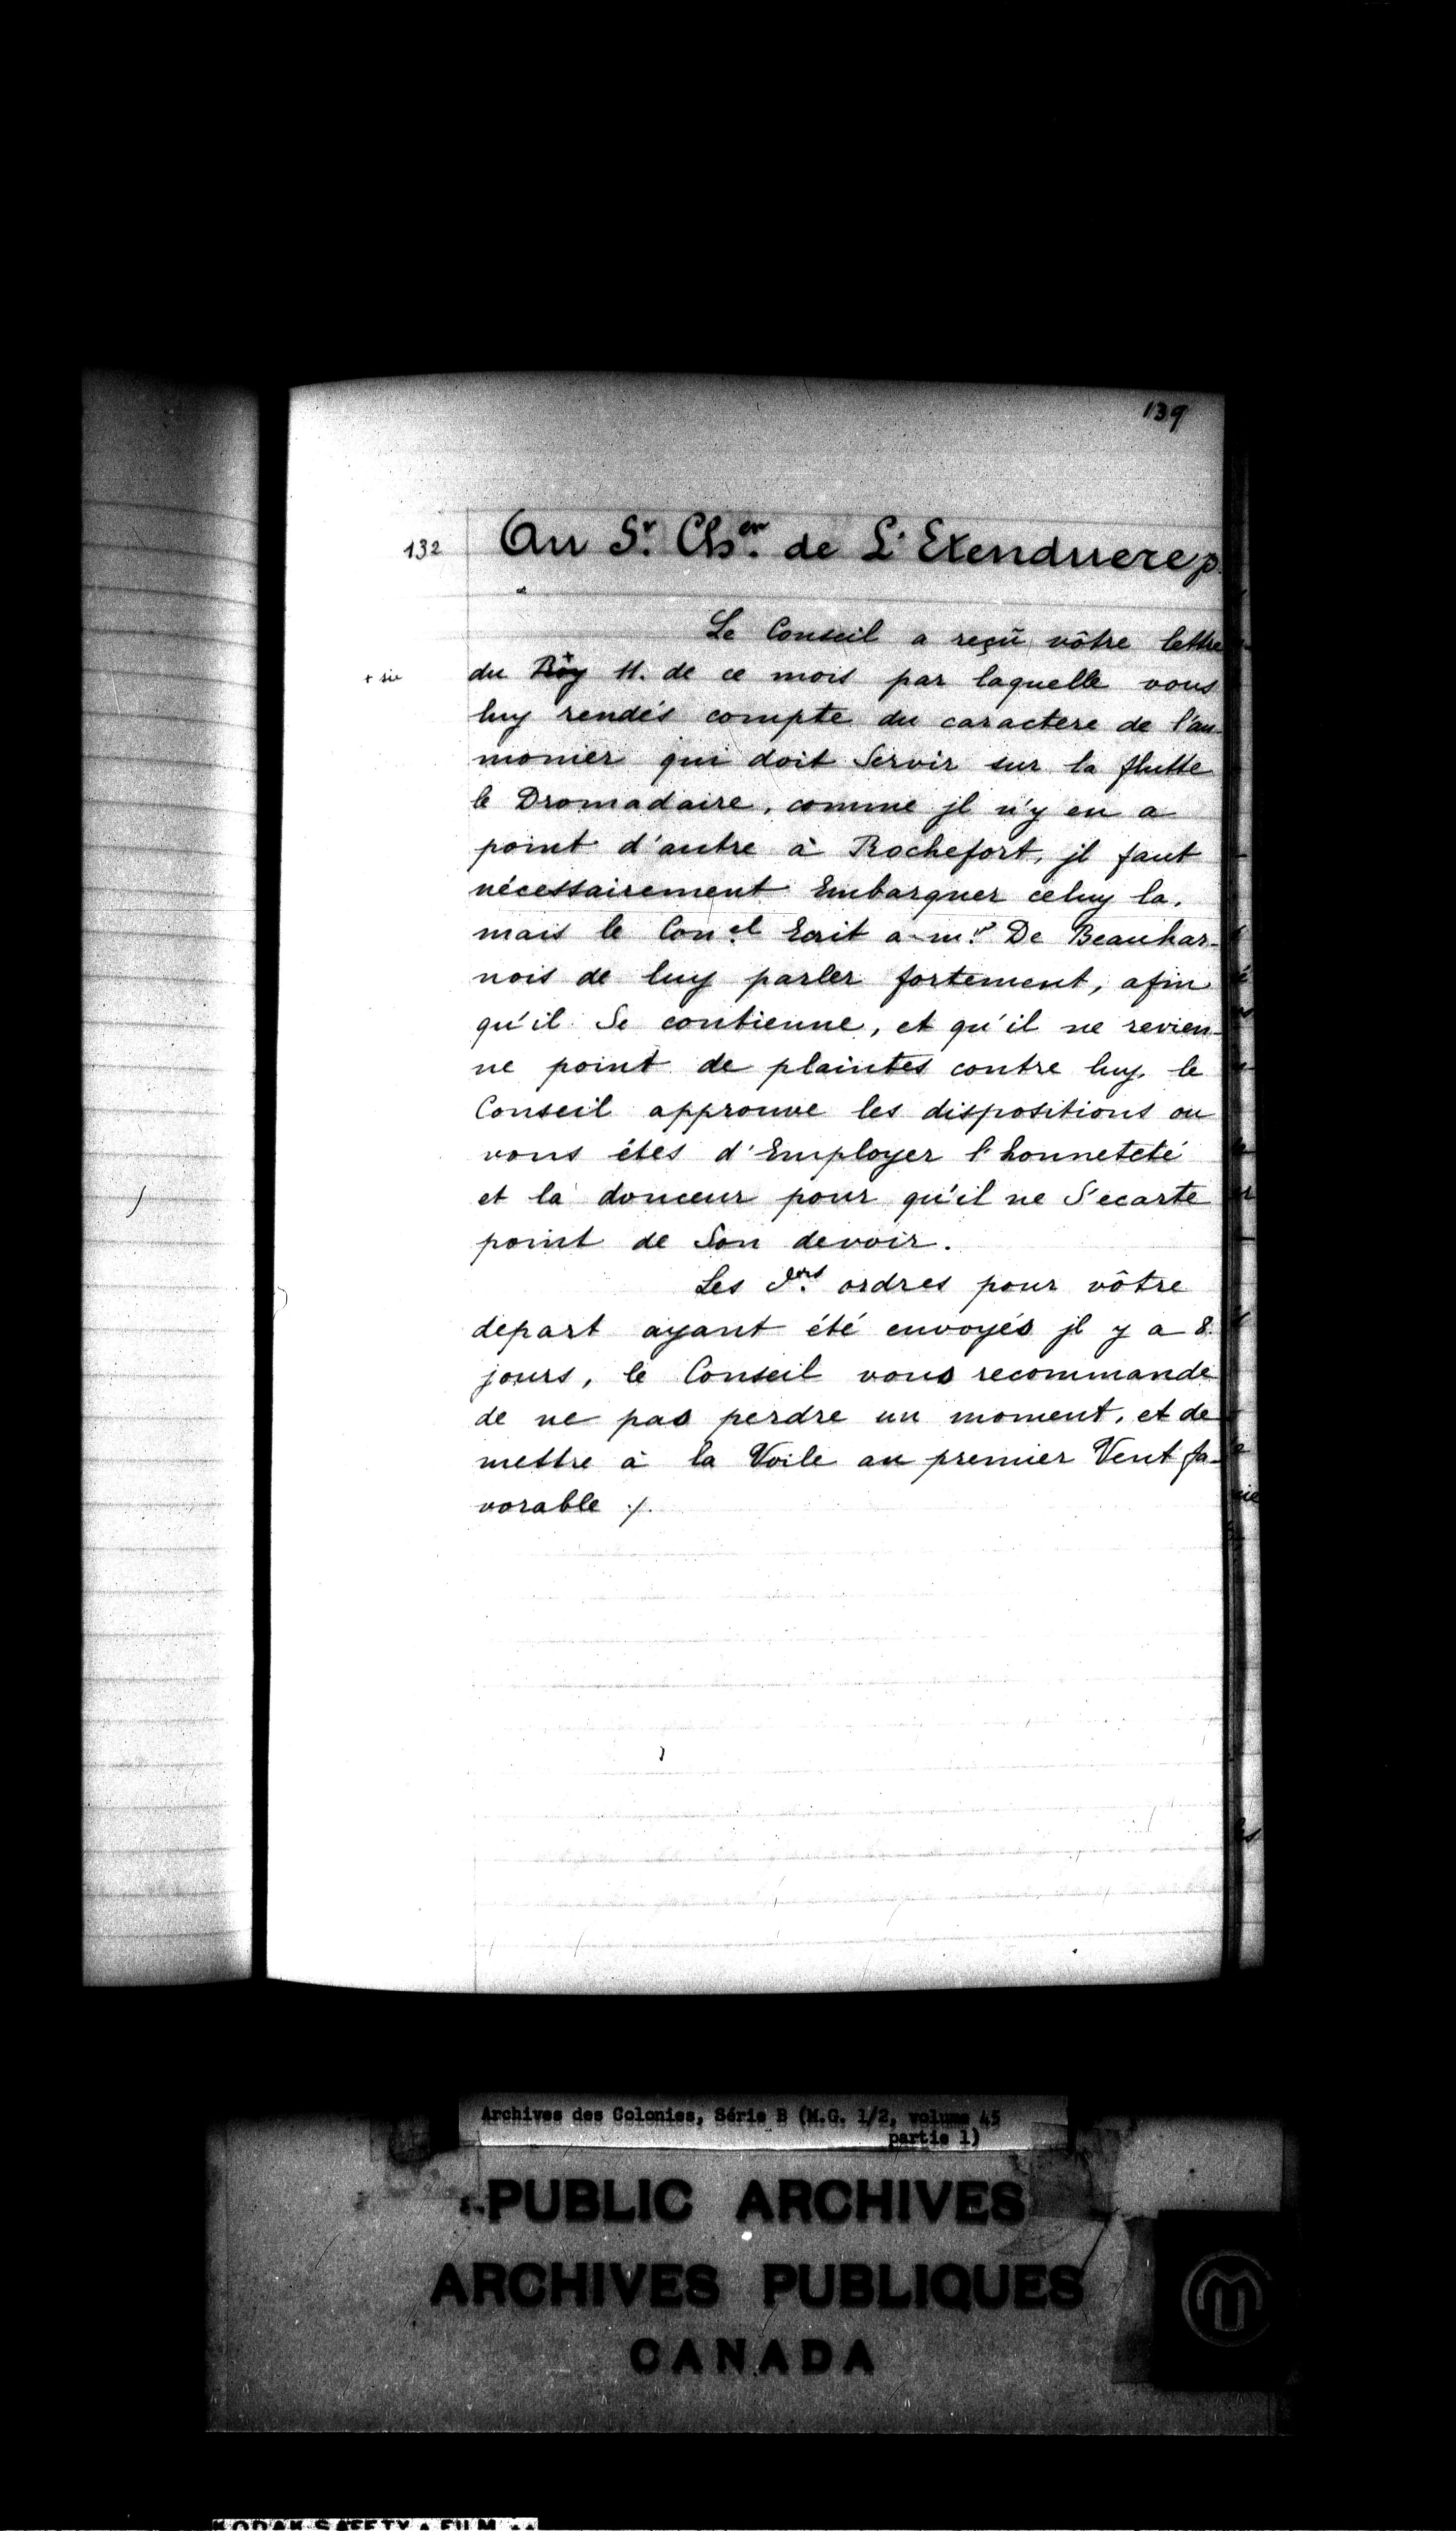 139
132 Au Sr. Cher. de L'Etenduere p.
Le Conseil a reçû vôtre lettre
+ sic
du Roy + 11. de ce mois par laquelle vous
luy rendés compte du caractere de l'au-
monier qui doit Servir sur la flutte
le Dromadaire, comme jl n'y en a
point d'autre à Rochefort, jl faut
nécessairement Embarquer celuy la.
mais le Conel. Ecrit a mr. De Beauhar-
nois de luy parler fortement, afin
qu'il Se contienne, et qu'il ne revien-
ne point de plaintes contre luy. le
Conseil approuve les dispositions ou
vous étes d'Employer l'honneteté
et la douceur pour qu'il ne S'ecarte
point de Son devoir.
Les ders. ordres pour vôtre
depart ayant été envoyés jl y a 8.
jours, le Conseil vous recommande
de ne pas perdre un moment, et de
mettre à la Voile au premier Vent fa-
vorable ./.
Archives des Colonies, Série B (M.G. 1/2, volume 45
partie 1)
PUBLIC ARCHIVES
ARCHIVES PUBLIQUES
CANADA
KODAK SAFETY FILM